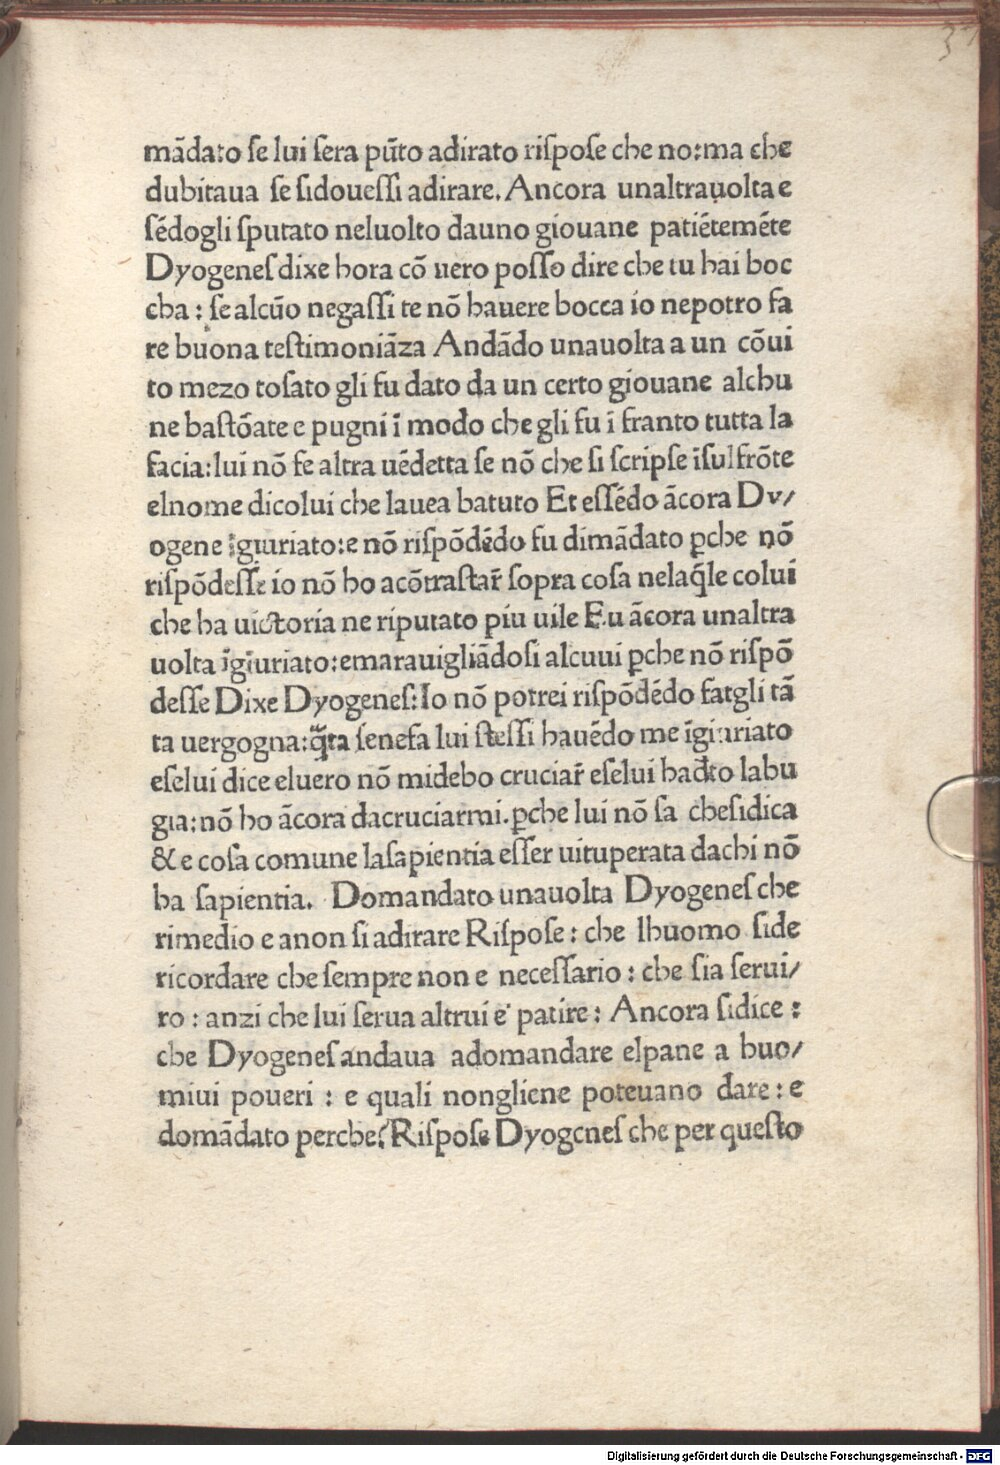 37
mādato ſe lui ſera pūto adirato riſpoſe che no:ma che
dubitaua ſe ſidoueſſi adirare. Ancora unaltrauolta e
ſēdogli ſputato neluolto dauno giouane patiētemēte
Dyogeneſ dixe hora cō uero poſſo dire che tu hai boc
cha : ſe alcūo negaſſi te nō hauere bocca io nepotro fa
re buona teſtimoniāza Andādo unauolta a un cōui
to mezo toſato gli fu dato da un certo giouane alchu
ne baſtōate e pugni ī modo che gli fu ī franto tutta la
facia:lui nō fe altra uēdetta ſe nō che ſi ſcripſe īſulfrōte
elnome dicolui che lauea batuto Et eſſēdo ācora Dv/
ogene īgiuriato:e nō riſpōdēdo fu dimādato ꝑche nō
riſpōdeſſe io nō ho acōtraſtar̄ ſopra coſa nelaq̄le colui
che ha uictoria ne riputato piu uile Fu ācora unaltra
uolta īgiuriato:emarauigliādoſi alcuui ꝑche nō riſpō
deſſe Dixe Dyogeneſ:Io nō potrei riſpōdēdo fatgli tā
ta uergogna:q̄ta ſenefa lui ſteſſi hauēdo me īgiuriato
eſelui dice eluero nō midebo cruciar̄ eſelui hadcto labu
gia:nō ho ācora dacruciarmi.ꝑche lui nō ſa cheſidica
& e coſa comune laſapientia eſſer uituperata dachi nō
ha ſapientia. Domandato unauolta Dyogeneſ che
rimedio e anon ſi adirare Riſpoſe : che lhuomo ſide
ricordare che ſempre non e neceſſario : che ſia ſerui/
ro : anzi che lui ſerua altrui e patire : Ancora ſidice :
che Dyogeneſ andaua adomandare elpane a huo/
miui poueri : e quali nongliene poteuano dare : e
domādato perche? Riſpoſe Dyogeneſ che per queſto
Digitalisierung gefördert durch die Deutsche Forschungsgemeinschaft - DFG